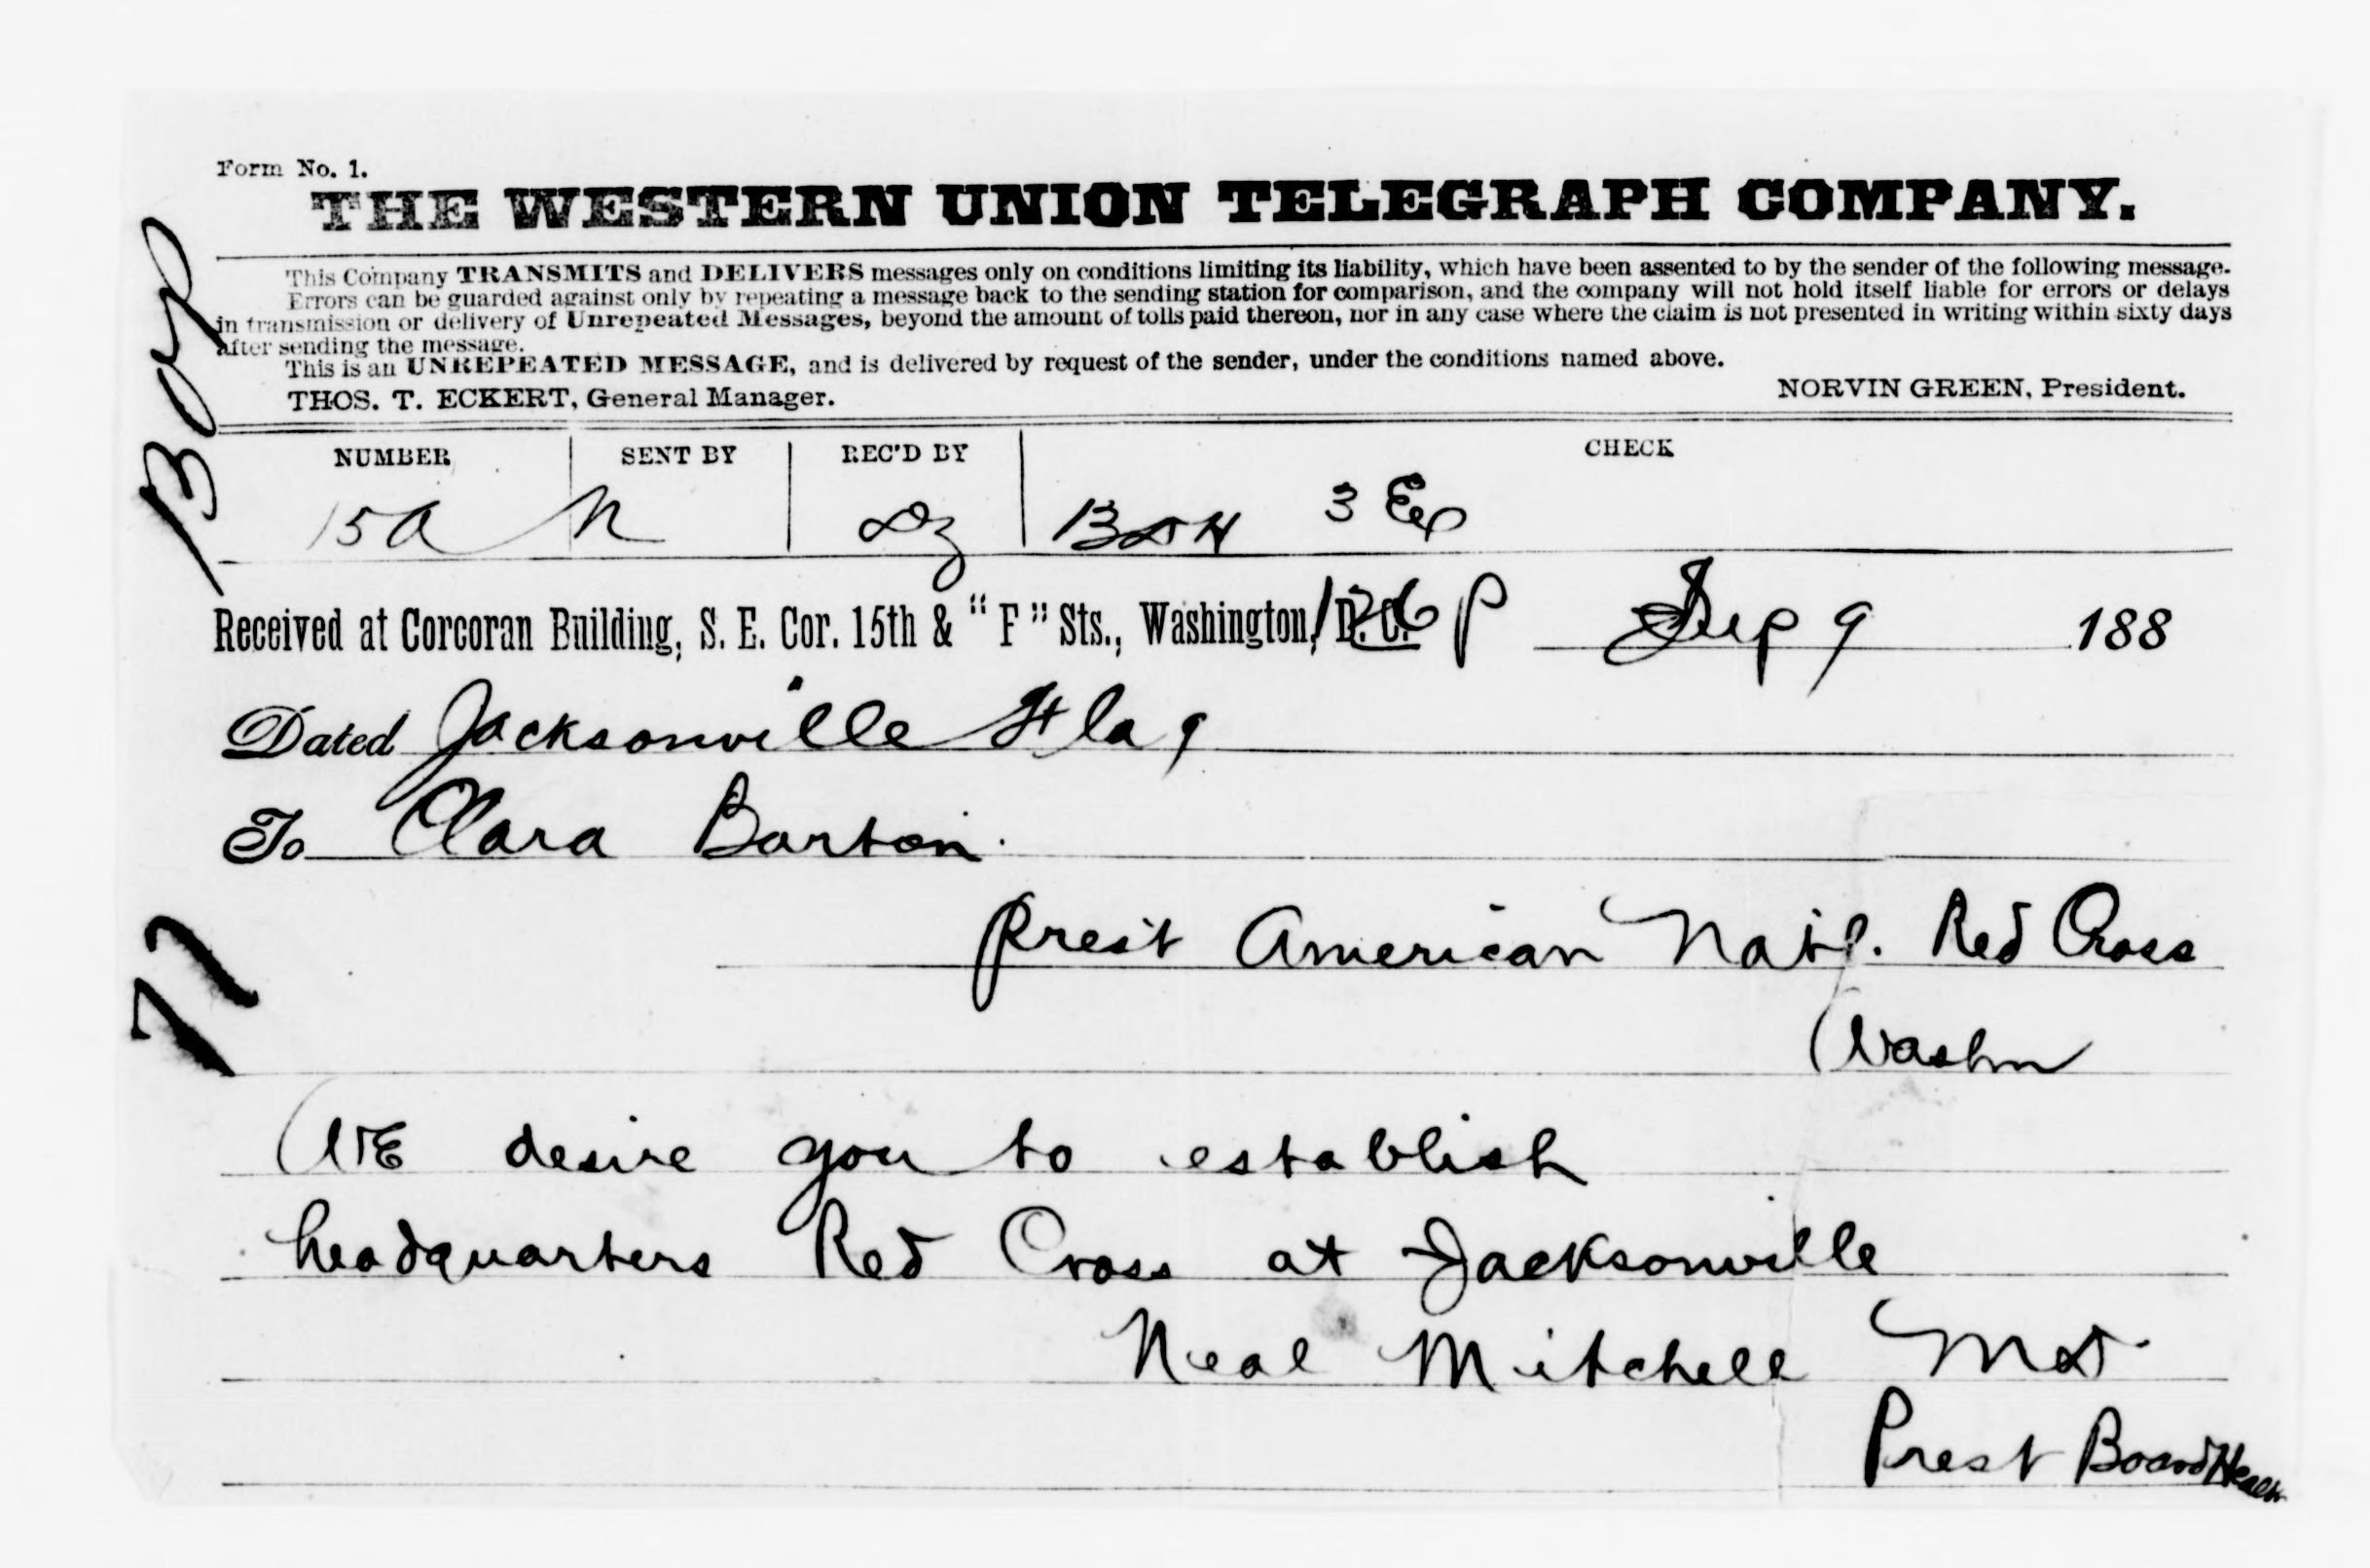 Form No. 1.
THE WESTERN UNION TELEGRAPH COMPANY.
This Company TRANSMITS and DELIVERS messages only on conditions limiting its liability, which have been assented to by the sender of the following message.
Errors can be guarded against only by repeating a message back to the sending station for comparison, and the company will not hold itself liable for errors or delays
in transmission or delivery of Unrepeated Messages, beyond the amount of tolls paid thereon, nor in any case where the claim is not presented in writing within sixty days
after sending the message.
This is an UNREPEATED MESSAGE, and is delivered by request of the sender, under the conditions named above.
THOS. T. ECKERT, General Manager. NORVIN GREEN, President.
NUMBER SENT BY REC'D BY CHECK
15a N 3
Received at Corcoran Building, S. E. Cor. 15th & "F" Sts., Washington, D. C. 126 P Sep 9 188
Dated Jacksonville Fla 9
To Clara Barton.
Prest American Natl. Red Cross
Washn
77
WE desire you to establish
headquarters Red Cross at Jacksonville
Neal Mitchell MD
Prest Board Health